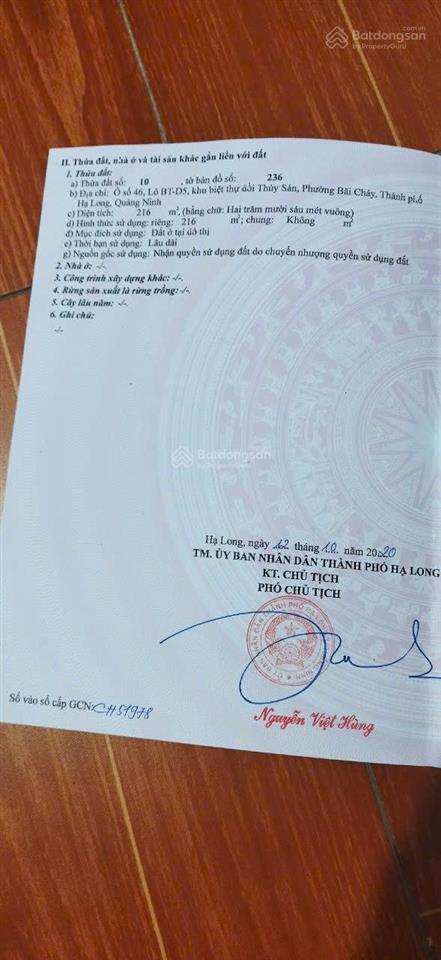 Batdongsan
by PropertyGuru
II. Thửa đất, nhà ở và tài sản khác gắn liền với đất
1. Thửa đất:
a) Thửa đất số: 10 , tờ bản đồ số: 236
b) Địa chỉ: Ô số 46, Lô BT-D5, khu biệt thự đồi Thủy Sản, Phường Bãi Cháy, Thành phố
Hạ Long, Quảng Ninh
c) Diện tích: 216 m², (bằng chữ: Hai trăm mười sáu mét vuông)
d) Hình thức sử dụng: riêng: 216 m²; chung: Không m²
đ) Mục đích sử dụng: Đất ở tại đô thị
e) Thời hạn sử dụng: Lâu dài
g) Nguồn gốc sử dụng: Nhận quyền sử dụng đất do chuyển nhượng quyền sử dụng đất
2. Nhà ở: -/-.
3. Công trình xây dựng khác: -/-.
4. Rừng sản xuất là rừng trồng: -/-.
5. Cây lâu năm: -/-.
6. Ghi chú:
-/-
Batdongsan
by PropertyGuru
Hạ Long, ngày 12 tháng 10 năm 2020
TM. ỦY BAN NHÂN DÂN THÀNH PHỐ HẠ LONG
KT. CHỦ TỊCH
PHÓ CHỦ TỊCH
Nguyễn Việt Hùng
Số vào sổ cấp GCN: CH51978